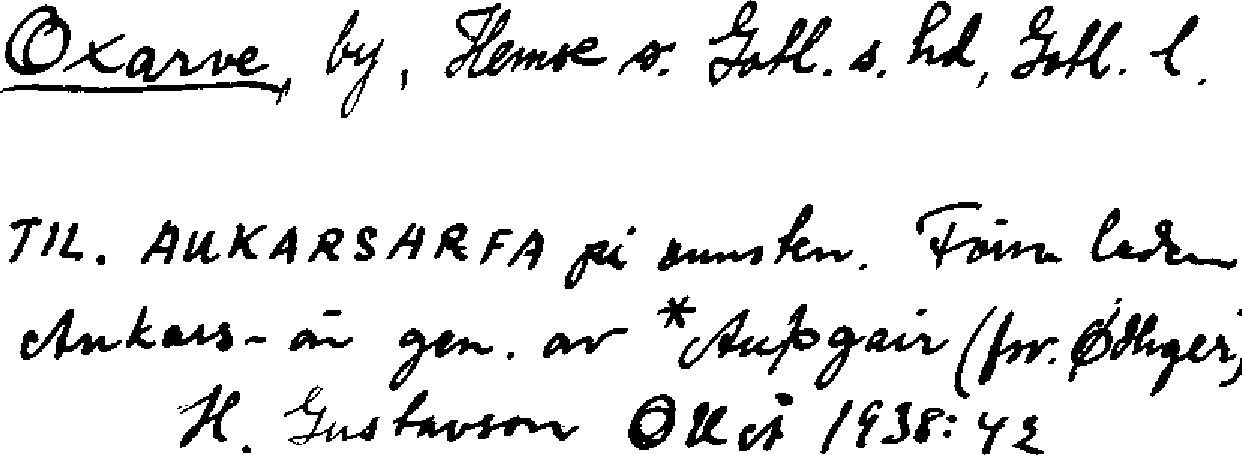 Oxarve, by, Hemse s. Gotl. s. hd, Gotl. l.
TIL. AUKARSARFA på runsten. Första leden
Aukars- är gen. av *Auþgair (fsv. Ødhger)
H. Gustavson 1938:42